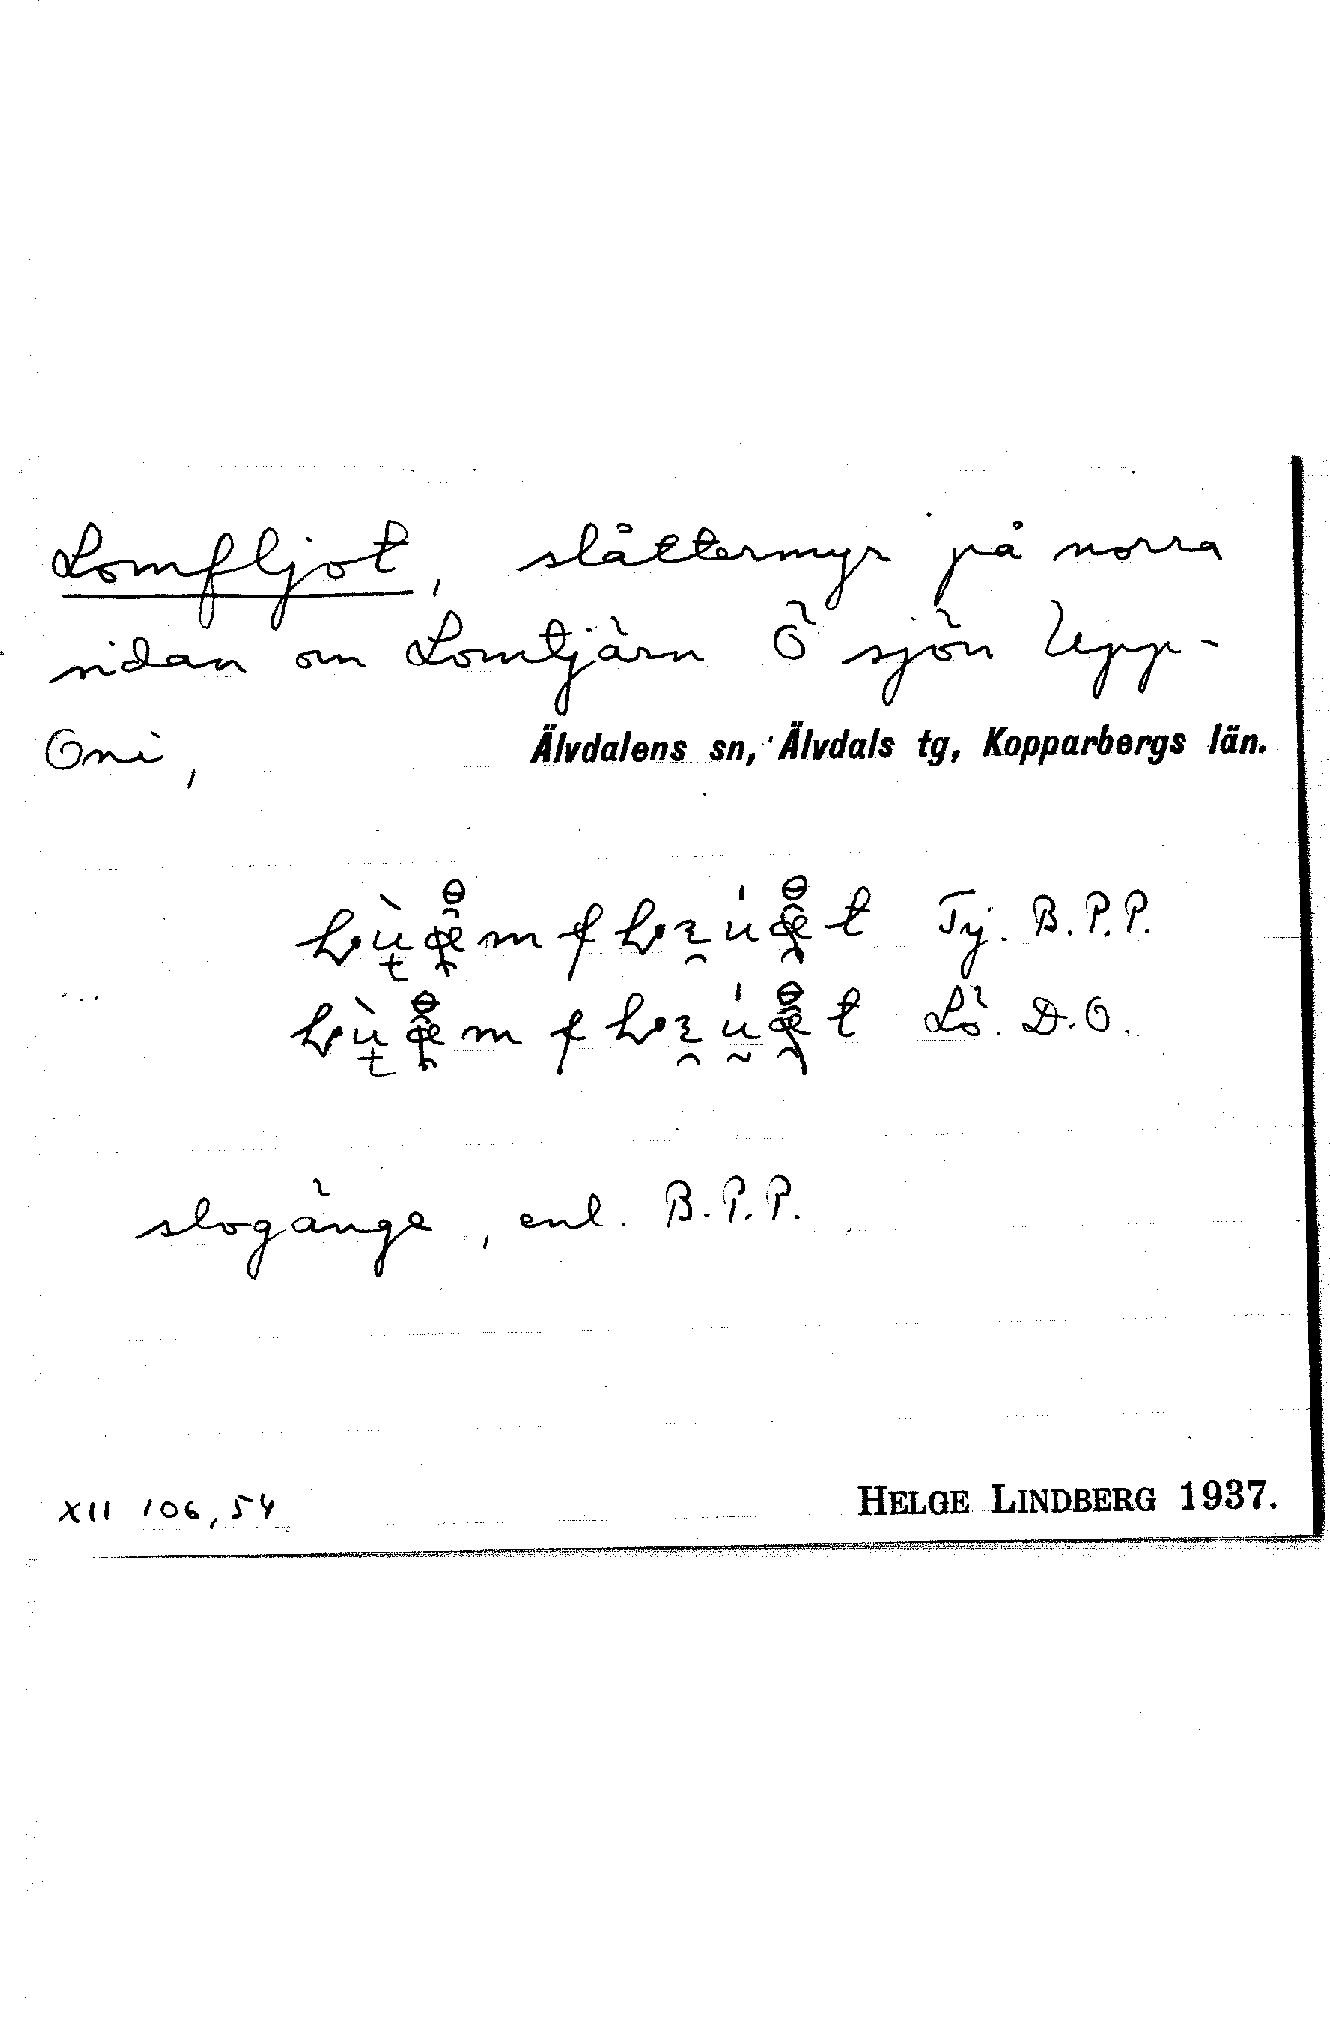 Lomfljot, slåttermyr på norra
sidan om Lomtjärn Ö sjön Upp-
Oni,
Älvdalens sn, Älvdals tg, Kopparbergs län.
Ty. B.P.P.
Lö. D.O.
slogänge, enl. B.P.P.
XII 106,54
HELGE LINDBERG 1937.